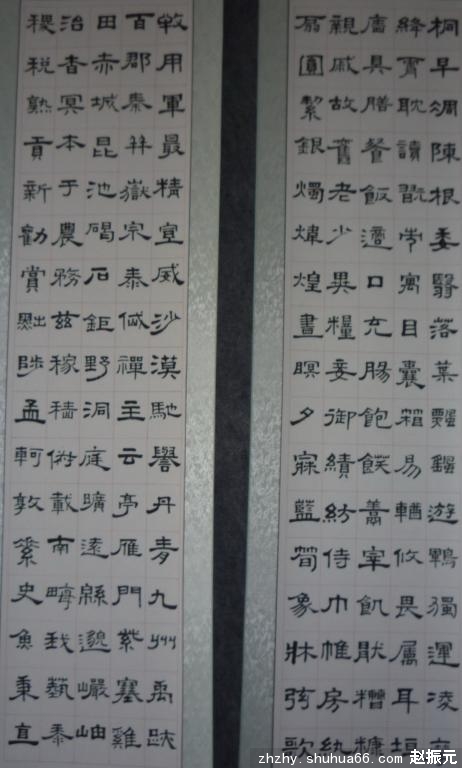 桐早凋陳根委翳落葉飄颻遊鵾獨運凌
絳霄耽讀翫市寓目囊箱易輶攸畏屬耳垣
牆具膳餐飯適口充腸飽飫烹宰飢猒糟糠
親戚故舊老少異糧妾御績紡侍巾帷房紈
扇圓絜銀燭煒煌晝瞑夕寐藍筍象牀弦歌
牧用軍最精宣威沙漠馳譽丹青九州禹跡
百郡秦并嶽宗泰岱禪主云亭雁門紫塞雞
田赤城昆池碣石鉅野洞庭曠遠緜邈巖岫
治杳冥本于農務茲稼穡俶載南畝我蓺黍
稷稅熟貢新勸賞黜陟孟軻敦素史魚秉直
zhzhy.shuhua66.com 赵振元